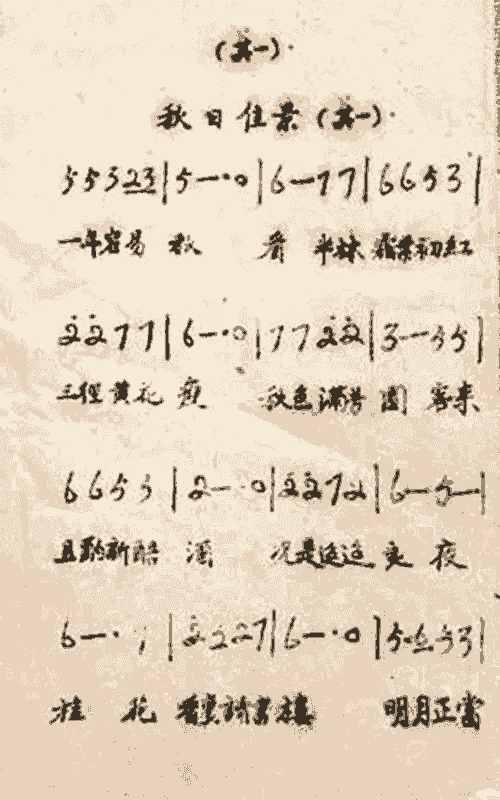 (其一)·
秋日佳景(其一)·
5 5 3 2 3 | 5 — · 0 | 6 — 7 7 | 6 6 5 3 |
一年容易 秋 看 半林 霜叶初紅
2̇ 2̇ 7 7 | 6 — · 0 | 7 7 2̇ 2̇ | 3 — 5 5 |
三徑黄花 瘦 秋色滿芳園 客来
6 6 5 3 | 2 — · 0 | 2̇ 2̇ 7 2 | 6 — 5 — |
且酌新醅 酒 况是迢迢 良 夜
6 — · 7 | 2̇ 2 2 7 | 6 — · 0 | 5 · 6 5 3 |
桂 花 香 樓 明月正當